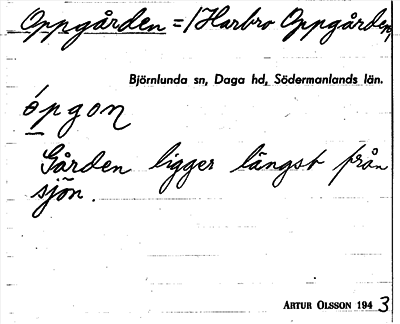 Oppgården = /Harbro Oppgården/
Björnlunda sn, Daga hd, Södermanlands län.
ópgon
Gården ligger längst från
sjön.
ARTUR OLSSON 1943